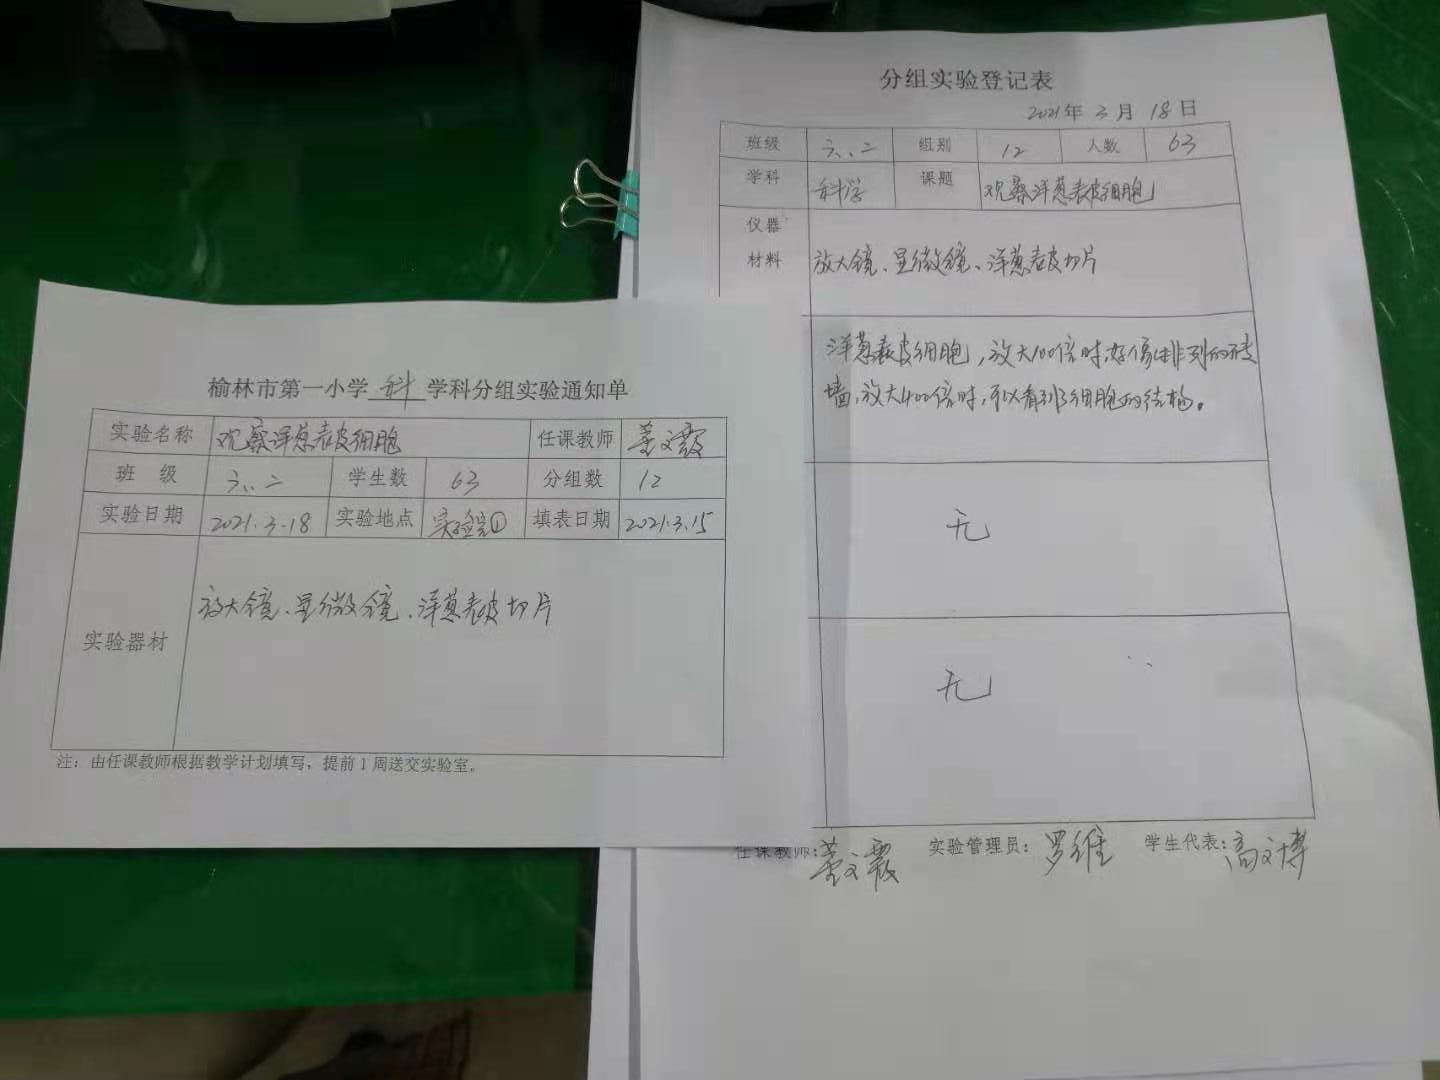 分组实验登记表
2021年 3月 18日
班级 六、二 组别 12 人数 63
学科 科学 课题 观察洋葱表皮细胞
仪器
材料 放大镜、显微镜、洋葱表皮切片
洋葱表皮细胞,放大100倍时,好像排列的砖
墙,放大400倍时,可以看到细胞的结构。
无
无
任课教师: 董文霞 实验管理员: 罗维 学生代表: 高文博
榆林市第一小学 科 学科分组实验通知单
实验名称 观察洋葱表皮细胞 任课教师 董文霞
班 级 六、二 学生数 63 分组数 12
实验日期 2021.3.18 实验地点 实验室① 填表日期 2021.3.15
实验器材 放大镜、显微镜、洋葱表皮切片
注:由任课教师根据教学计划填写,提前1周送交实验室。